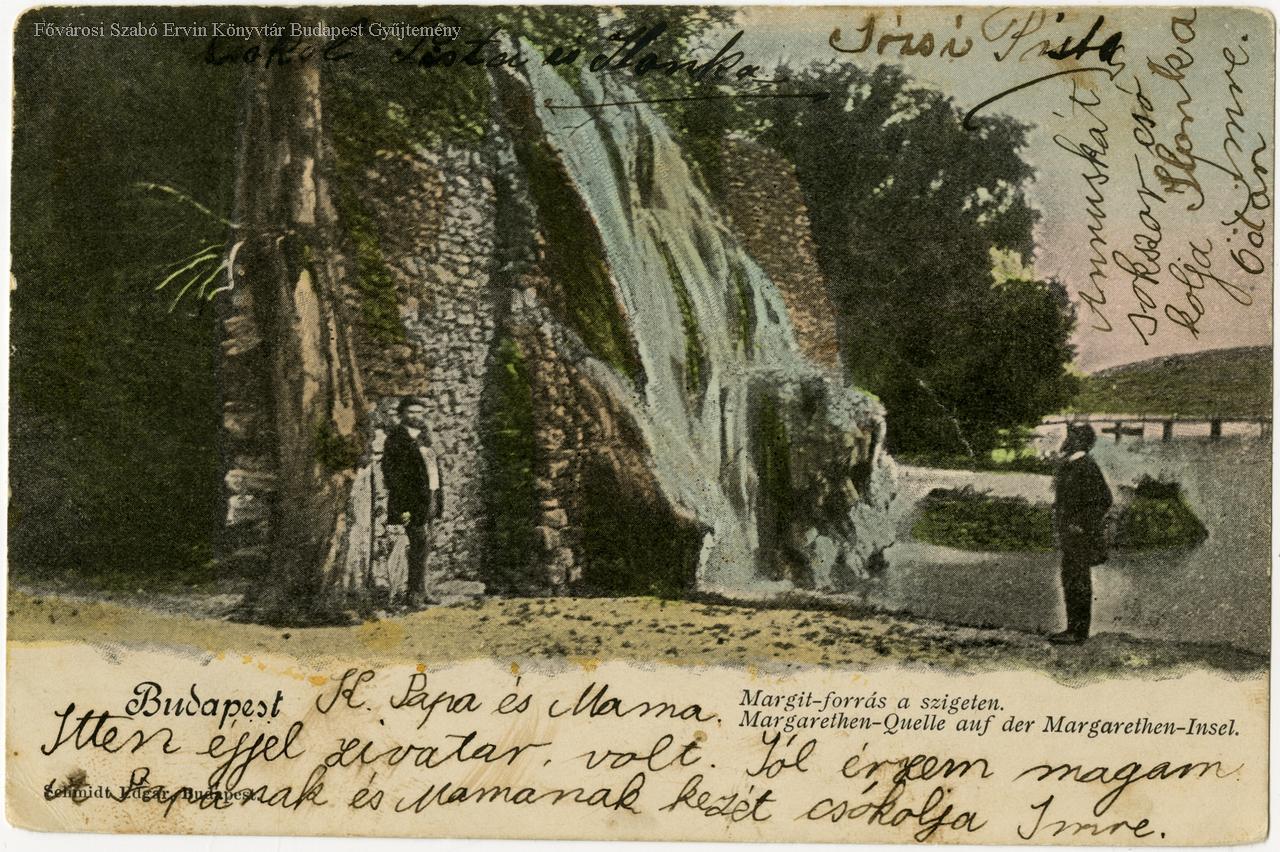 Fővárosi Szabó Ervin Könyvtár Budapest Gyűjtemény
és Ilonka
Józsi Pista
Annuskát
sokszor csó
kolja Ilonka
Ödön Imre.
Budapest
K. Papa és Mama.
Margit-forrás a szigeten.
Margarethen-Quelle auf der Margarethen-Insel.
Itten éjjel zivatar, volt. Jól érzem magam
Papának és Mamának kezét csókolja Imre.
Schmidt Edgar, Budapest.